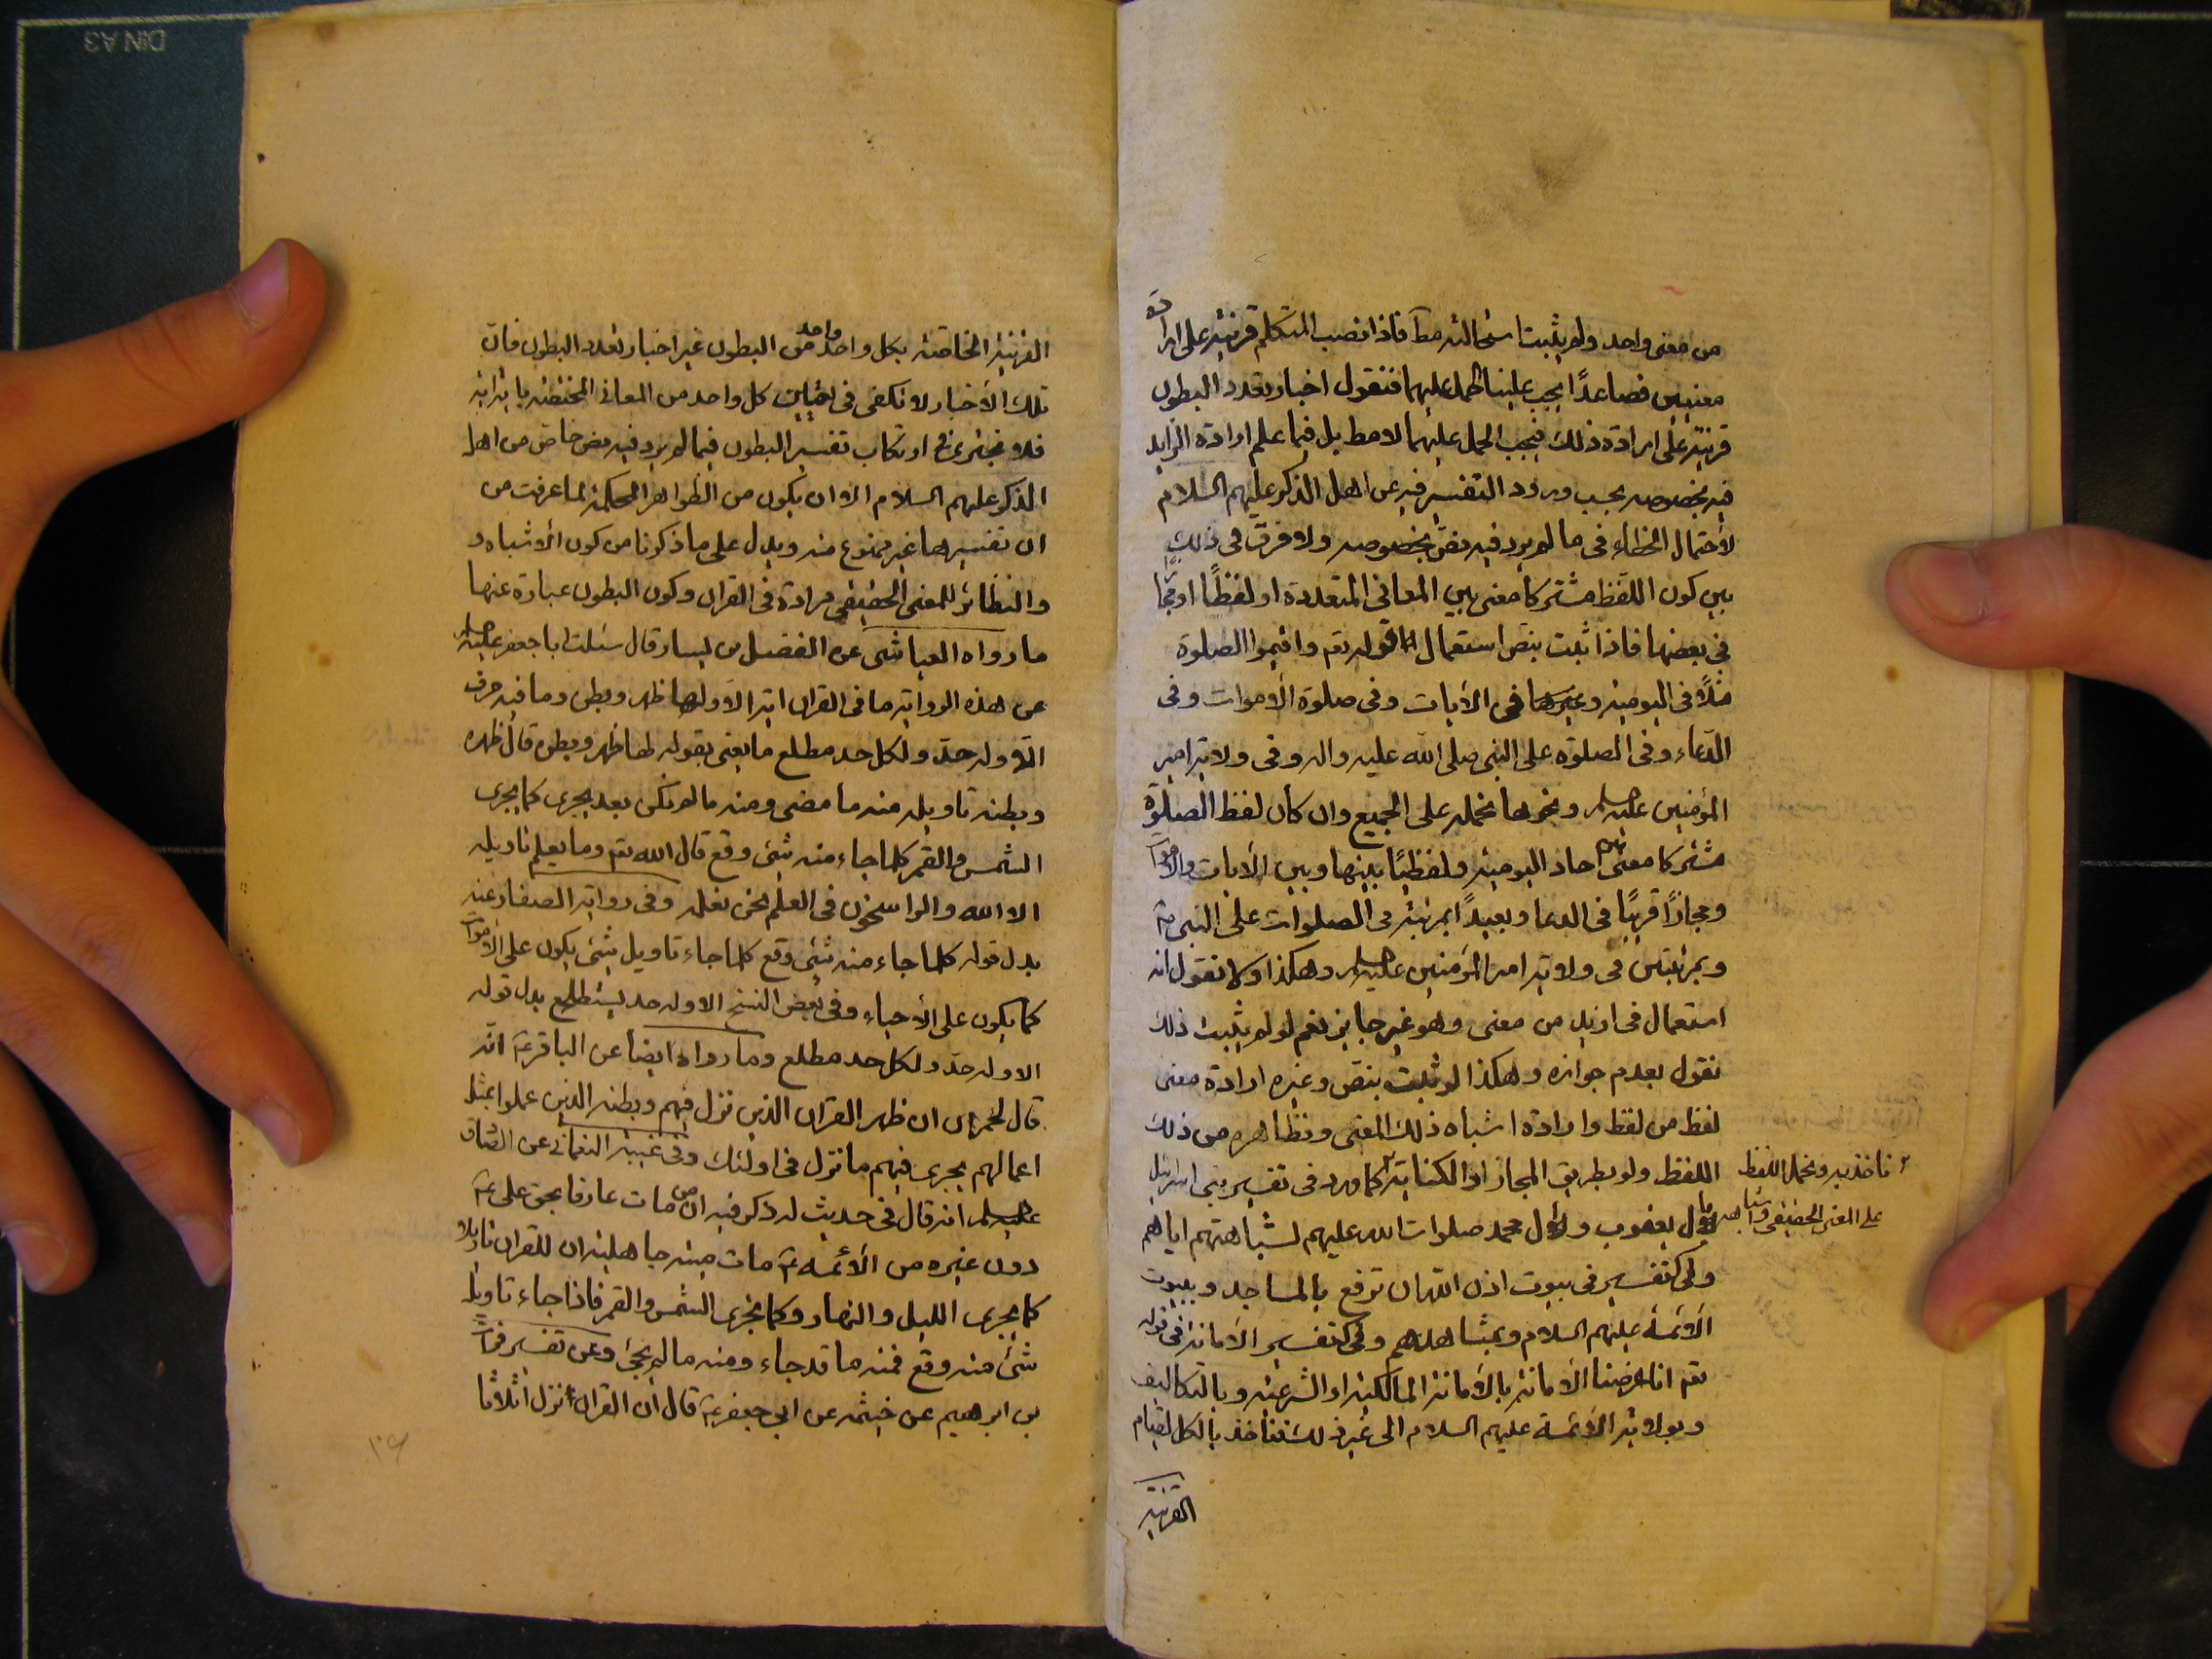 من معنى واحد ولم يثبت استحالته مط فاذا نصب المتكلم قرينة على ارادة
معنيين فصاعدًا يجب علينا الحمل عليهما فنقول اخبار تعدد البطون
قرينة على ارادة ذلك فيجب الحمل عليهما لا مط بل فيما علم ارادة الزايد
فيه بخصوصه بحسب ورود التفسير فيه عن اهل الذكر عليهم السلام
لأحتمال الخطاء فى ما لم يرد فيه نص بخصوصه ولا فرق فى ذلك
بين كون اللفظ مشتركا معنى بين المعانى المتعددة او لفظًا او مجازًا
فى بعضها فاذا ثبت بنص استعمال قوله تعم واقيموا الصلوة
مثلًا فى اليومية وغيرها فى الأيات وفى صلوة الأموات وفى
الدعاء وفى الصلوة على النبى صلى الله عليه واله وفى ولاية امير
المؤمنين عليه السلم ونحوها نحمله على الجميع وان كان لفظ الصلوة
مشتركا معنى بين احاد اليومية ولفظيًا بينها وبين الأيات والأموات
ومجازًا قريبًا فى الدعا وبعيدًا بمرتبة فى الصلوات على النبى ص
وبمرتبتين فى ولاية امير المؤمنين عليه السلم وهكذا ولا نقول انه
استعمال فى ازيد من معنى وهو غير جايز نعم لو لم يثبت ذلك
نقول بعدم جوازه وهكذا لو ثبت بنص وغيره ارادة معنى
لفظ من لفظ وارادة اشباه ذلك المعنى ونظاهره من ذلك
اللفظ ولو بطريق المجاز او الكناية كما ورد فى تفسير بنى اسرائيل
بال يعقوب وبال محمد صلوات الله عليهم لشباهتهم اياهم
وكتفسير فى بيوت اذن الله ان ترفع بالمساجد وببيوت
الأئمة عليهم السلام وبمشاهدهم وكتفسير الأمانة فى قوله
تعم انا عرضنا الأمانة بالأمانة المالكية او الشرعية وبالتكاليف
وبولاية الأئمة عليهم السلام الى غير ذلك فنأخذ بالكل لقيام
القرينة
فناخذ به ونحمل اللفظ
على المعنى الحقيقى واشباهه
القرينة الخاصة بكل واحد واحد من البطون غير اخبار تعدد البطون فان
تلك الأخبار لا تكفى فى تعيين كل واحد من المعانى المختصة باية اية
فلا نجترى على ارتكاب تفسير البطون فيما لم يرد فيه نص خاص من اهل
الذكر عليهم السلام الا ان يكون من الظواهر المحكمة لما عرفت من
ان تفسيرها غير ممنوع منه ويدل على ما ذكرنا من كون الأشباه و
والنظائر للمعنى الحقيقى مرادة فى القران وكون البطون عبارة عنها
ما رواه العياشى عن الفضيل بن يسار قال سئلت ابا جعفر عليه السلم
عن هذه الرواية ما فى القران اية الا ولها ظهر وبطن وما فيه حرف
الا وله حد ولكل حد مطلع ما يعنى بقوله لها ظهر وبطن قال ظهره
وبطنه تاويله منه ما مضى ومنه ما لم يكن بعد يجرى كما يجرى
الشمس والقمر كلما جاء منه شئ وقع قال الله تعم وما يعلم تاويله
الا الله والراسخون فى العلم نحن نعلمه وفى رواية الصفار عنه
بدل قوله كلما جاء منه شئ وقع كلما جاء تاويل شئ يكون على الأموات
كما يكون على الأحياء وفى بعض النسخ الا وله حد يستطلع بدل قوله
الا وله حد ولكل حد مطلع وما رواه ايضا عن الباقر ع انه
قال لحمران ان ظهر القران الذين نزل فيهم وبطنه الذين عملوا بمثل
اعمالهم يجرى فيهم ما نزل فى اولئك وفى غيبة النعمانى عن الصادق
عليه السلم انه قال فى حديث له ذكر فيه ان من مات عارفا بحق على ع
دون غيره من الأئمة ع مات ميتة جاهلية ان للقران تاويلا
كما يجرى الليل والنهار وكما يجرى الشمس والقمر فاذا جاء تاويل
شئ منه وقع فمنه ما قد جاء ومنه ما لم يجئ وعن تفسير فرات
بن ابرهيم عن خيثمة عن ابى جعفر ع قال ان القران انزل اثلاثا